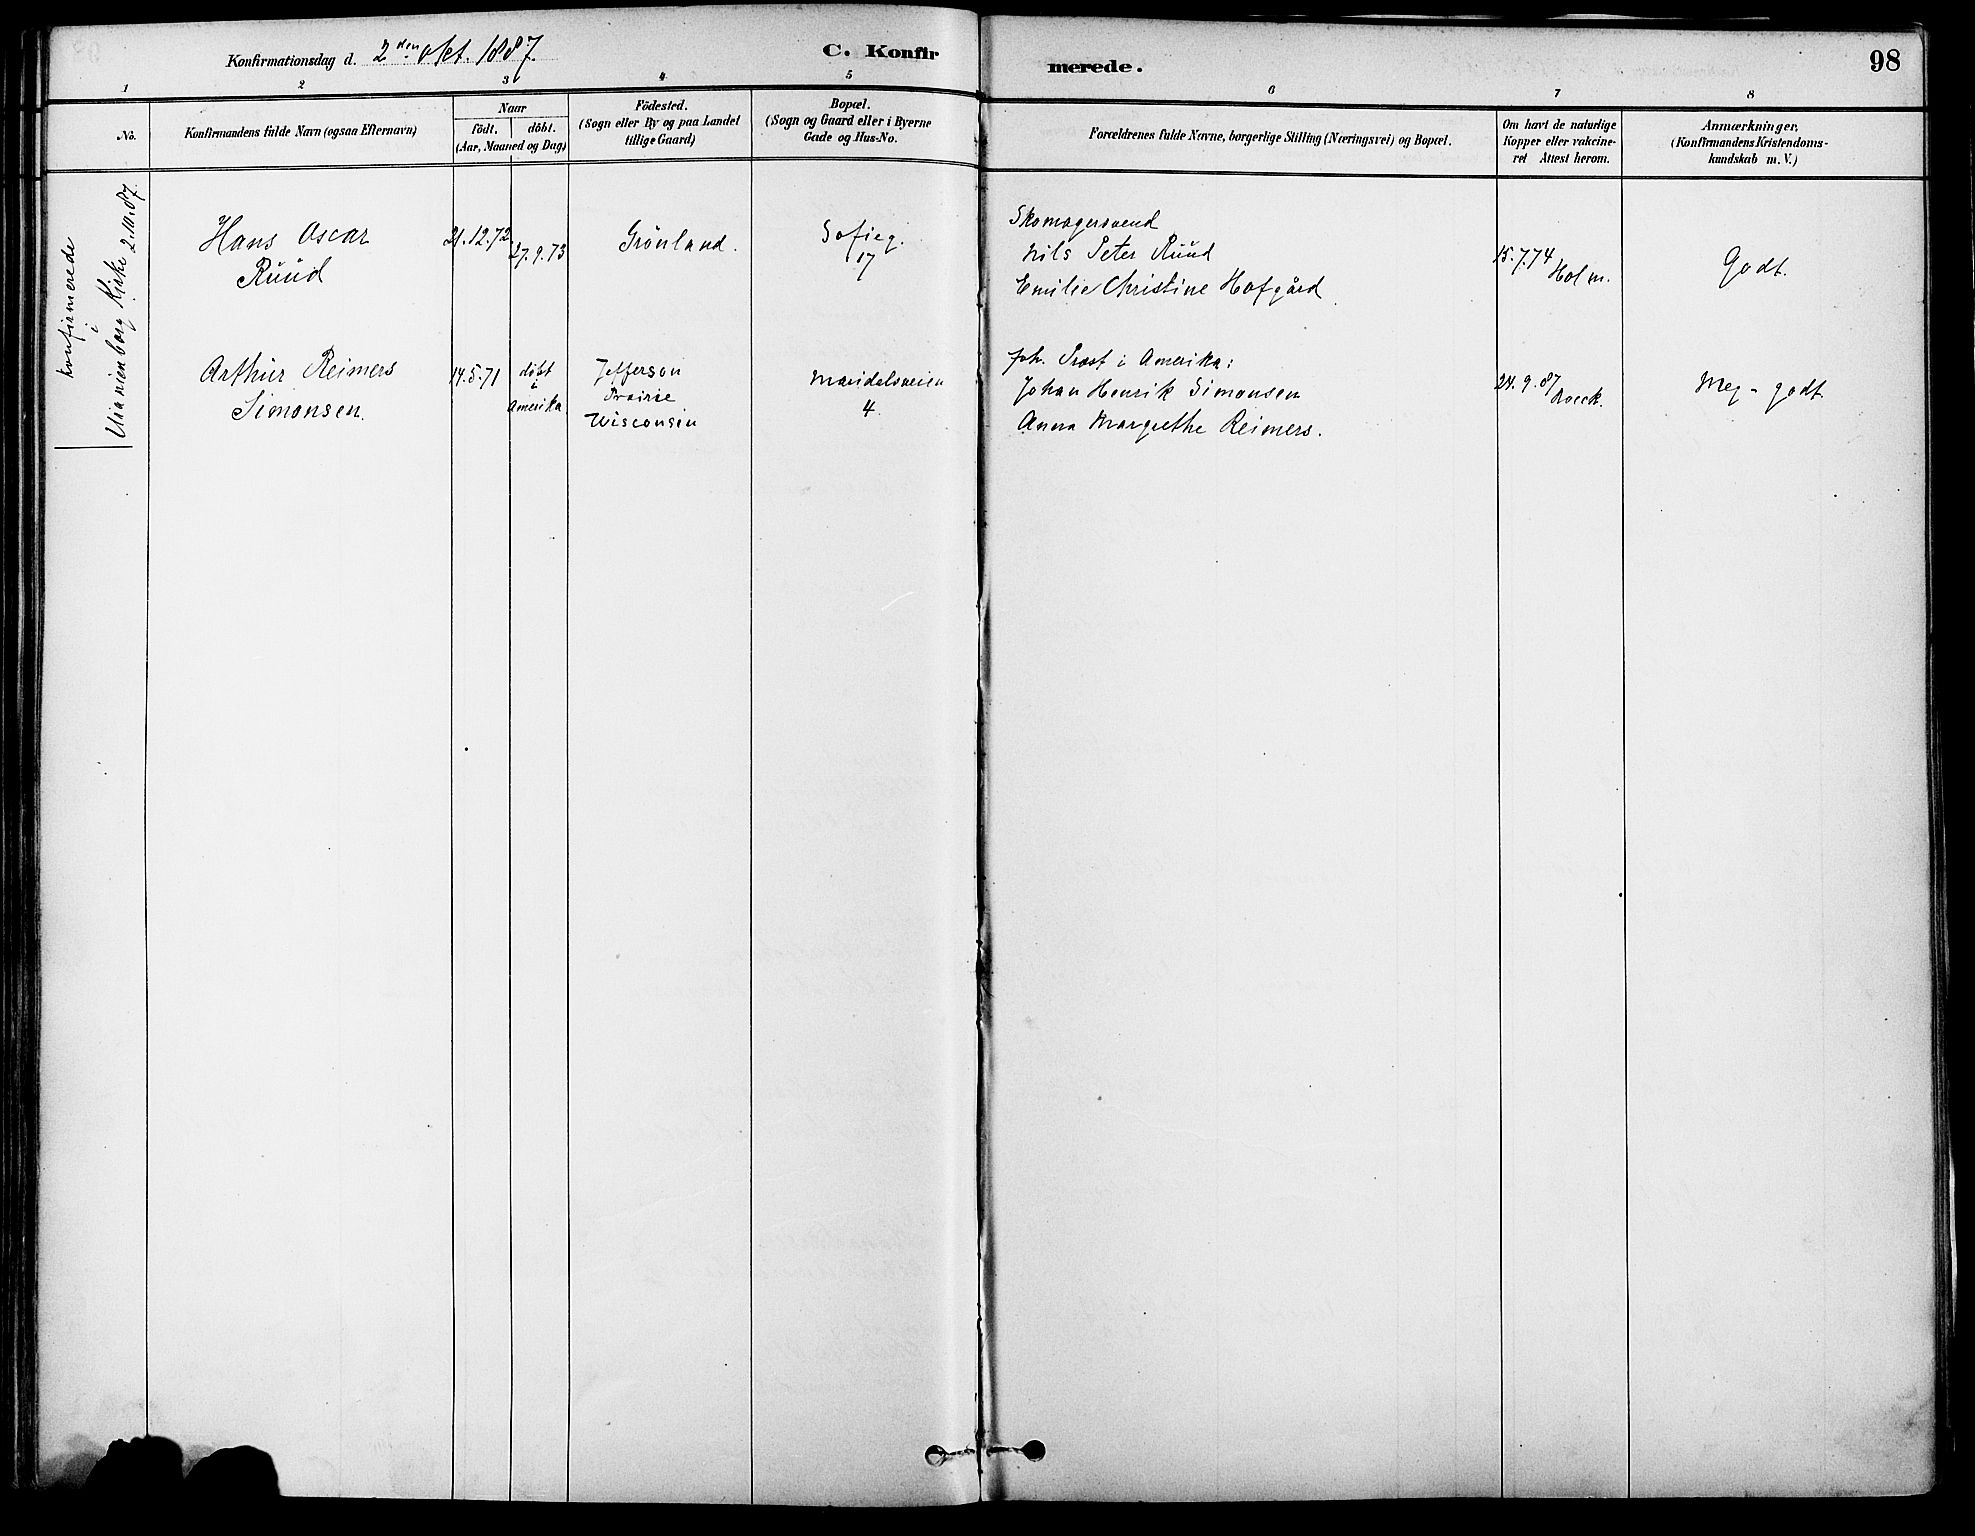 Konfirmationsdag d. 2den Okt. 1887.
C. Konfirmerede.
98
1 2 3 4 5 6 7 8
No.
Konfirmandens fulde Navn (ogsaa Efternavn)
Naar
födt. döbt.
(Aar, Maaned og Dag)
Födested.
(Sogn eller By og paa Landet
tillige Gaard)
Bopæl.
(Sogn og Gaard eller i Byerne
Gade og Hus-No.
Forældrenes fulde Navne, borgerlige Stilling (Næringsvei) og Bopæl.
Om havt de naturlige
Kopper eller vakcine-
ret Attest herom.
Anmærkninger,
(Konfirmandens Kristendoms-
kundskab m. V.)
konfirmerede
i
Uranienborg Kirke 2.10.87.
Hans Oscar
Ruud
21.12.72
27.9.73
Grönland.
Sofieg.
17
Skomagersvend
Nils Peter Ruud
Emilie Christine Hofgård
15.7.74 Holm.
Godt.
Arthur Reimers
Simonsen.
14.5.71
döbt
i
Amerika
Jefferson
Prairie
Wisconsin
Maridalsveien
4.
fh. Præst i Amerika:
Johan Henrik Simonsen
Anna Margrethe Reimers.
24.9.87
Meg - godt